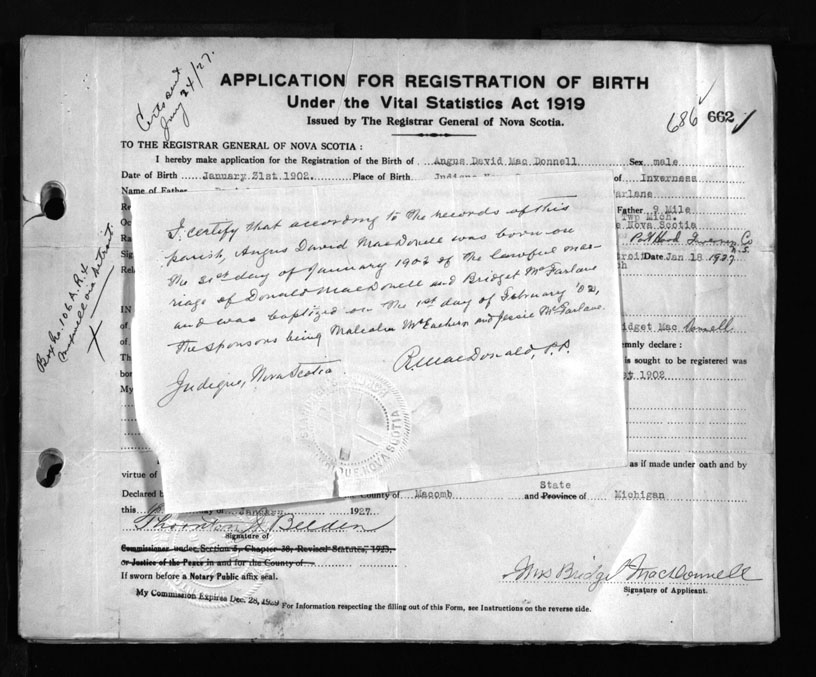 Certs sent
Jany 24/27.
APPLICATION FOR REGISTRATION OF BIRTH
Under the Vital Statistics Act 1919
Issued by The Registrar General of Nova Scotia.
686 662
TO THE REGISTRAR GENERAL OF NOVA SCOTIA :
I hereby make application for the Registration of the Birth of Angus David Mac Donnell Sex male
Date of Birth January 31st 1902. Place of Birth Judique of Inverness
Name of Father arlane
Father 9 Mile
Twp Mich.
Nova Scotia
Port Hood Inverness Co
N.S.
Date Jan 18 1927
Box No. 106 A. R. 4
via Detroit
X
I certify that according to the records of this
parish, Angus David MacDonell was born on
the 31st day of January 1902 of the lawful mar-
riage of Donald MacDonell and Bridget McFarlane
and was baptized on the 1st day of February '02,
the sponsors being Malcolm McEachern and Jessie McFarlane.
Judique, Nova Scotia. R. MacDonald, P.P.
NOVA SCOTIA
IN
idget Mac Donnell
emnly declare :
is sought to be registered was
1902
My
as if made under oath and by
virtue of
Declared County of Macomb and Province of State Michigan
this day of January 1927.
Thornton Belden
Signature of
Commissioner under Section 3, Chapter 38, Revised Statutes, 1923,
or Justice of the Peace in and for the County of
If sworn before a Notary Public affix seal.
Mrs Bridget MacDonnell
Signature of Applicant.
My Commission Expires Dec. 28, 1929
For Information respecting the filling out of this Form, see Instructions on the reverse side.